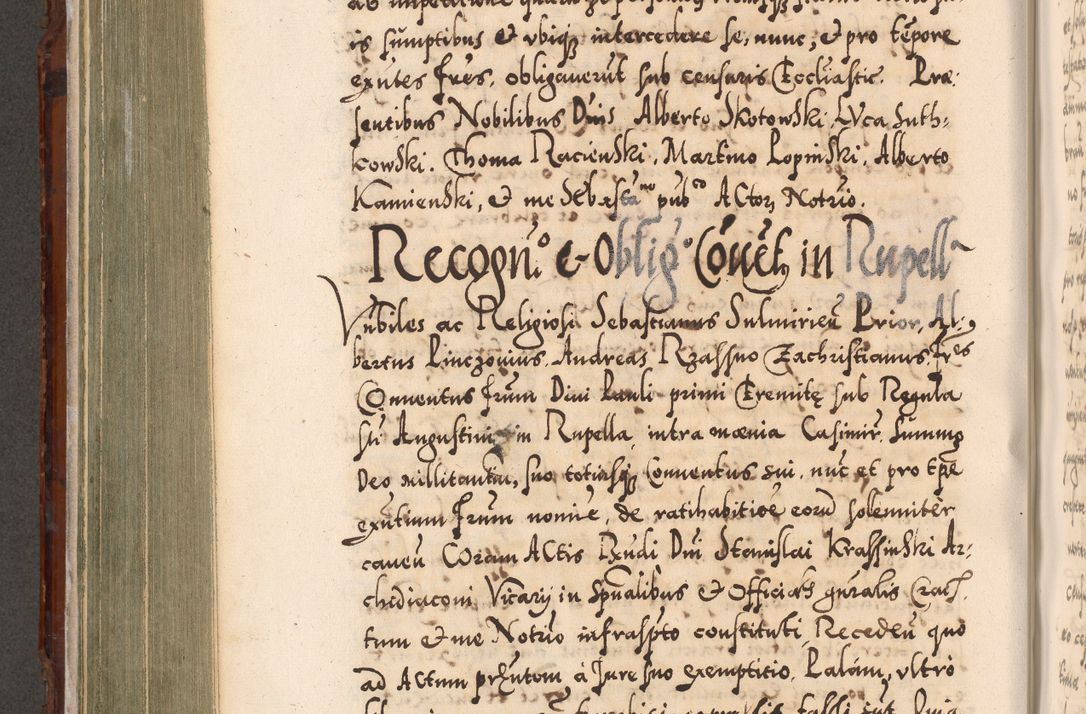 is sumptibus et ubiq intercedere se, nunc, et pro tempore
exntes fres, obligaverut sub censuris Eccliastic. Præ:
sentibus Nobilibus Dnis Alberto Skotowski, Lvca Suth:
kowski. Thoma Racienski, Martino Lopinski, Alberto
Kamienski, et me Sebæstano pubco Actorz Notrio.
Recogn.o et Oblig.o Conuets in Rupella
Vnbiles ac Religiosi Sebastianus Sulmirien Prior, Al:
bertus Pinczovius, Andreas Rzassno Zachristianus, frēs
Conventus frum Divi Pauli primi Eremitę sub Regula
sti Augustini in Rupella intra mœnia Casimir, Summo
Deo millitantiu, suo totiusq Conventus sui, nuc et pro tpe
exntium frum nomine, de ratihabitioe eorum solenniter
caven Coram Actis Rndi Dni Stanislai Krassinski Ar:
chidiaconi Vicarij in Spualibus et Officialis gnralis Crac
tum et me Notrio infraspto constituti Receden quo
ad Actum præntem à Jure suo exemptitio, Palam, vltro